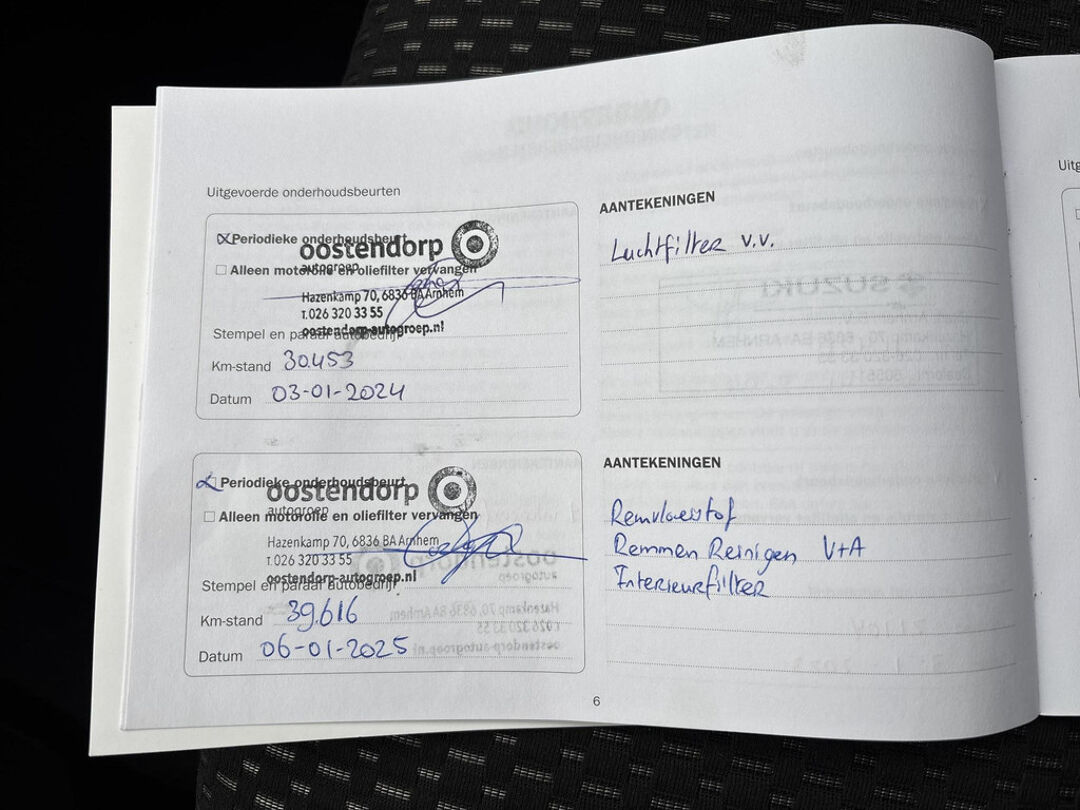 Uitgevoerde onderhoudsbeurten
Periodieke onderhoudsbeurt
oostendorp
autogroep
Alleen motorolie en oliefilter vervangen
Hazenkamp 70, 6836 BA Arnhem
T. 026 320 33 55
oostendorp-autogroep.nl
Stempel en paraaf autobedrijf
Km-stand 30.453
Datum 03-01-2024
AANTEKENINGEN
Luchtfilter v.v.
Periodieke onderhoudsbeurt
oostendorp
autogroep
Alleen motorolie en oliefilter vervangen
Hazenkamp 70, 6836 BA Arnhem
T. 026 320 33 55
oostendorp-autogroep.nl
Stempel en paraaf autobedrijf
Km-stand 39.616
Datum 06-01-2025
AANTEKENINGEN
Remvloeistof
Remmen Reinigen V+A
Interieurfilter
6
Uitg